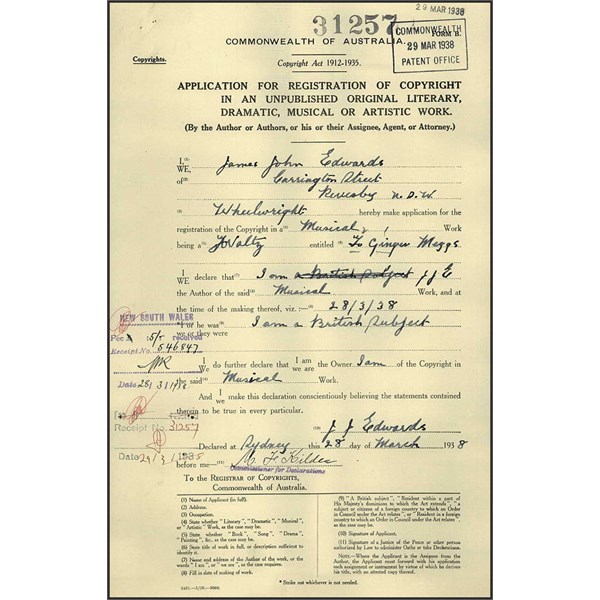 29 MAR 1938
31257
COMMONWEALTH OF AUSTRALIA.
COMMONWEALTH
FORM B.
29 MAR 1938
PATENT OFFICE
Copyrights.
Copyright Act 1912-1935.
APPLICATION FOR REGISTRATION OF COPYRIGHT
IN AN UNPUBLISHED ORIGINAL LITERARY,
DRAMATIC, MUSICAL OR ARTISTIC WORK.
(By the Author or Authors, or his or their Assignee, Agent, or Attorney.)
I (1) James John Edwards
WE,
of (2) Carrington Street
Revesby N.S.W
(3) Wheelwright hereby make application for the
registration of the Copyright in a (4) Musical Work
being a (5) Waltz entitled (6) To Ginger Meggs
I WE declare that (7) I am a British Subject JJE
the Author of the said Musical Work, and at
the time of the making thereof, viz.:— (8) 28/3/38
I or he was (9) I am a British Subject
we or they were
NEW SOUTH WALES
Fee 5/- received
Receipt No. 546847
Date 28/3/1938
I We do further declare that I am we are the Owner I am of the Copyright in
the said Musical Work.
And I we make this declaration conscientiously believing the statements contained
therein to be true in every particular.
Receipt No. 31257
(10) J J Edwards
Declared at Sydney this 28 day of March 1938
Date 29/3/1938
before me (11)
Commissioner for Declarations
To the REGISTRAR OF COPYRIGHTS,
Commonwealth of Australia.
(1) Name of Applicant (in full).
(2) Address.
(3) Occupation.
(4) State whether "Literary", "Dramatic", "Musical",
or "Artistic" Work, as the case may be.
(5) State whether "Book", "Song", "Drama",
"Painting", &c., as the case may be.
(6) State title of work in full, or description sufficient to
identify it.
(7) Name and address of the Author of the work, or the
words "I am", or "we are", as the case requires.
(8) Fill in date of making of work.
(9) "A British subject", "Resident within a part of
His Majesty's dominions to which the Act extends", "a
subject or citizen of a foreign country to which an Order in
Council under the Act relates", or "Resident in a foreign
country to which an Order in Council under the Act relates",
as the case may be.
(10) Signature of Applicant.
(11) Signature of a Justice of the Peace or other person
authorized by Law to administer Oaths or take Declarations.
NOTE.—Where the Applicant is the Assignee from the
Author, the Applicant must forward with his application
each assignment or instrument by virtue of which he derives
his title, with an attested copy thereof.
* Strike out whichever is not needed.